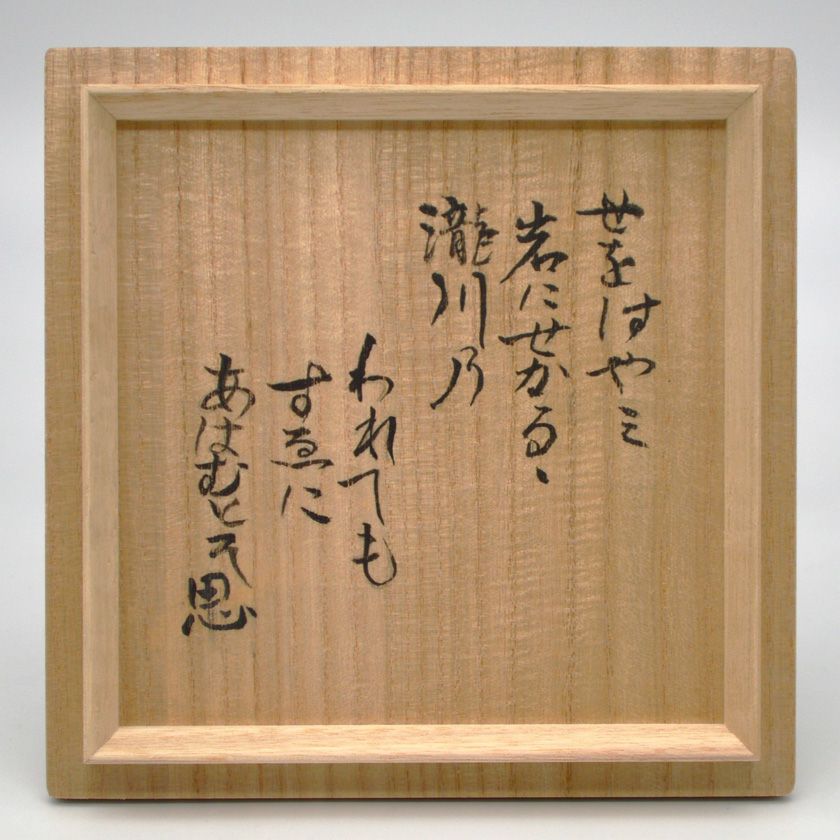 せをはやミ
岩にせかるゝ
瀧川乃
われても
すゑに
あはむとそ思